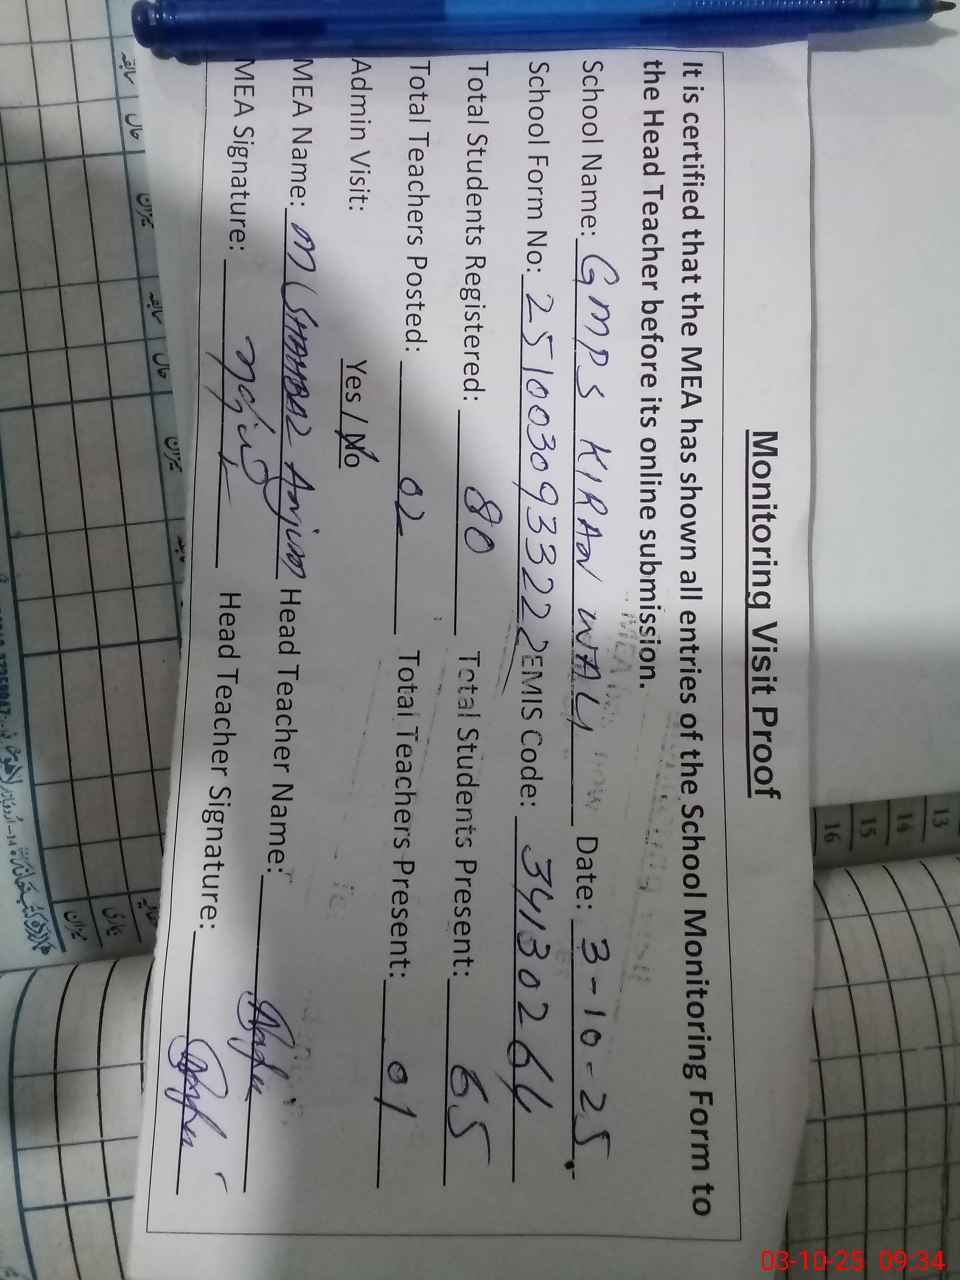 Monitoring Visit Proof
It is certified that the MEA has shown all entries of the School Monitoring Form to
the Head Teacher before its online submission.
School Name: GMPS KIRAN WALI Date: 3-10-25.
School Form No: 2510030933222 EMIS Code: 34130264
Total Students Registered: 80 Total Students Present: 65
Total Teachers Posted: 02 Total Teachers Present: 01
Admin Visit: Yes / No
MEA Name: M SHAHBAZ Anjum Head Teacher Name:
MEA Signature: Head Teacher Signature:
13
14
15
16
سابقہ
حال
میزان
سابقہ
حال
میزان
03-10-25 09:34